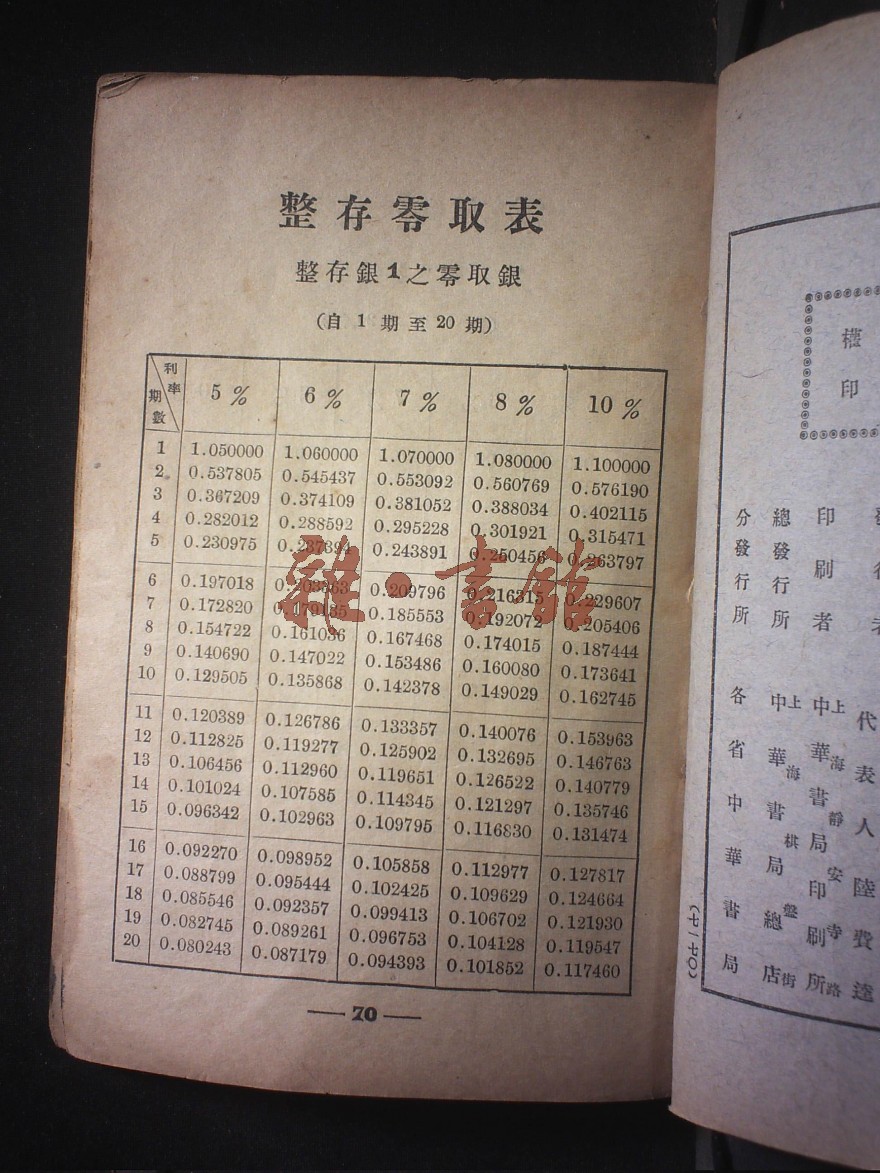 整存零取表
整存銀1之零取銀
(自 1 期至 20 期)
利率 期數 5 % 6 % 7 % 8 % 10 %
1 1.050000 1.060000 1.070000 1.080000 1.100000
2 0.537805 0.545437 0.553092 0.560769 0.576190
3 0.367209 0.374109 0.381052 0.388034 0.402115
4 0.282012 0.288592 0.295228 0.301921 0.315471
5 0.230975 0.237394 0.243891 0.250456 0.263797
6 0.197018 0.203363 0.209796 0.216315 0.229607
7 0.172820 0.179135 0.185553 0.192072 0.205406
8 0.154722 0.161036 0.167468 0.174015 0.187444
9 0.140690 0.147022 0.153486 0.160080 0.173641
10 0.129505 0.135868 0.142378 0.149029 0.162745
11 0.120389 0.126786 0.133357 0.140076 0.153963
12 0.112825 0.119277 0.125902 0.132695 0.146763
13 0.106456 0.112960 0.119651 0.126522 0.140779
14 0.101024 0.107585 0.114345 0.121297 0.135746
15 0.096342 0.102963 0.109795 0.116830 0.131474
16 0.092270 0.098952 0.105858 0.112977 0.127817
17 0.088799 0.095444 0.102425 0.109629 0.124664
18 0.085546 0.092357 0.099413 0.106702 0.121930
19 0.082745 0.089261 0.096753 0.104128 0.119547
20 0.080243 0.087179 0.094393 0.101852 0.117460
— 70 —
雜·書館
印
代表人陸費逵
印刷者 上海靜安寺路 中華書局印刷所
總發行所 上海棋盤街 中華書局總店
分發行所 各省中華書局
(十一·七〇)